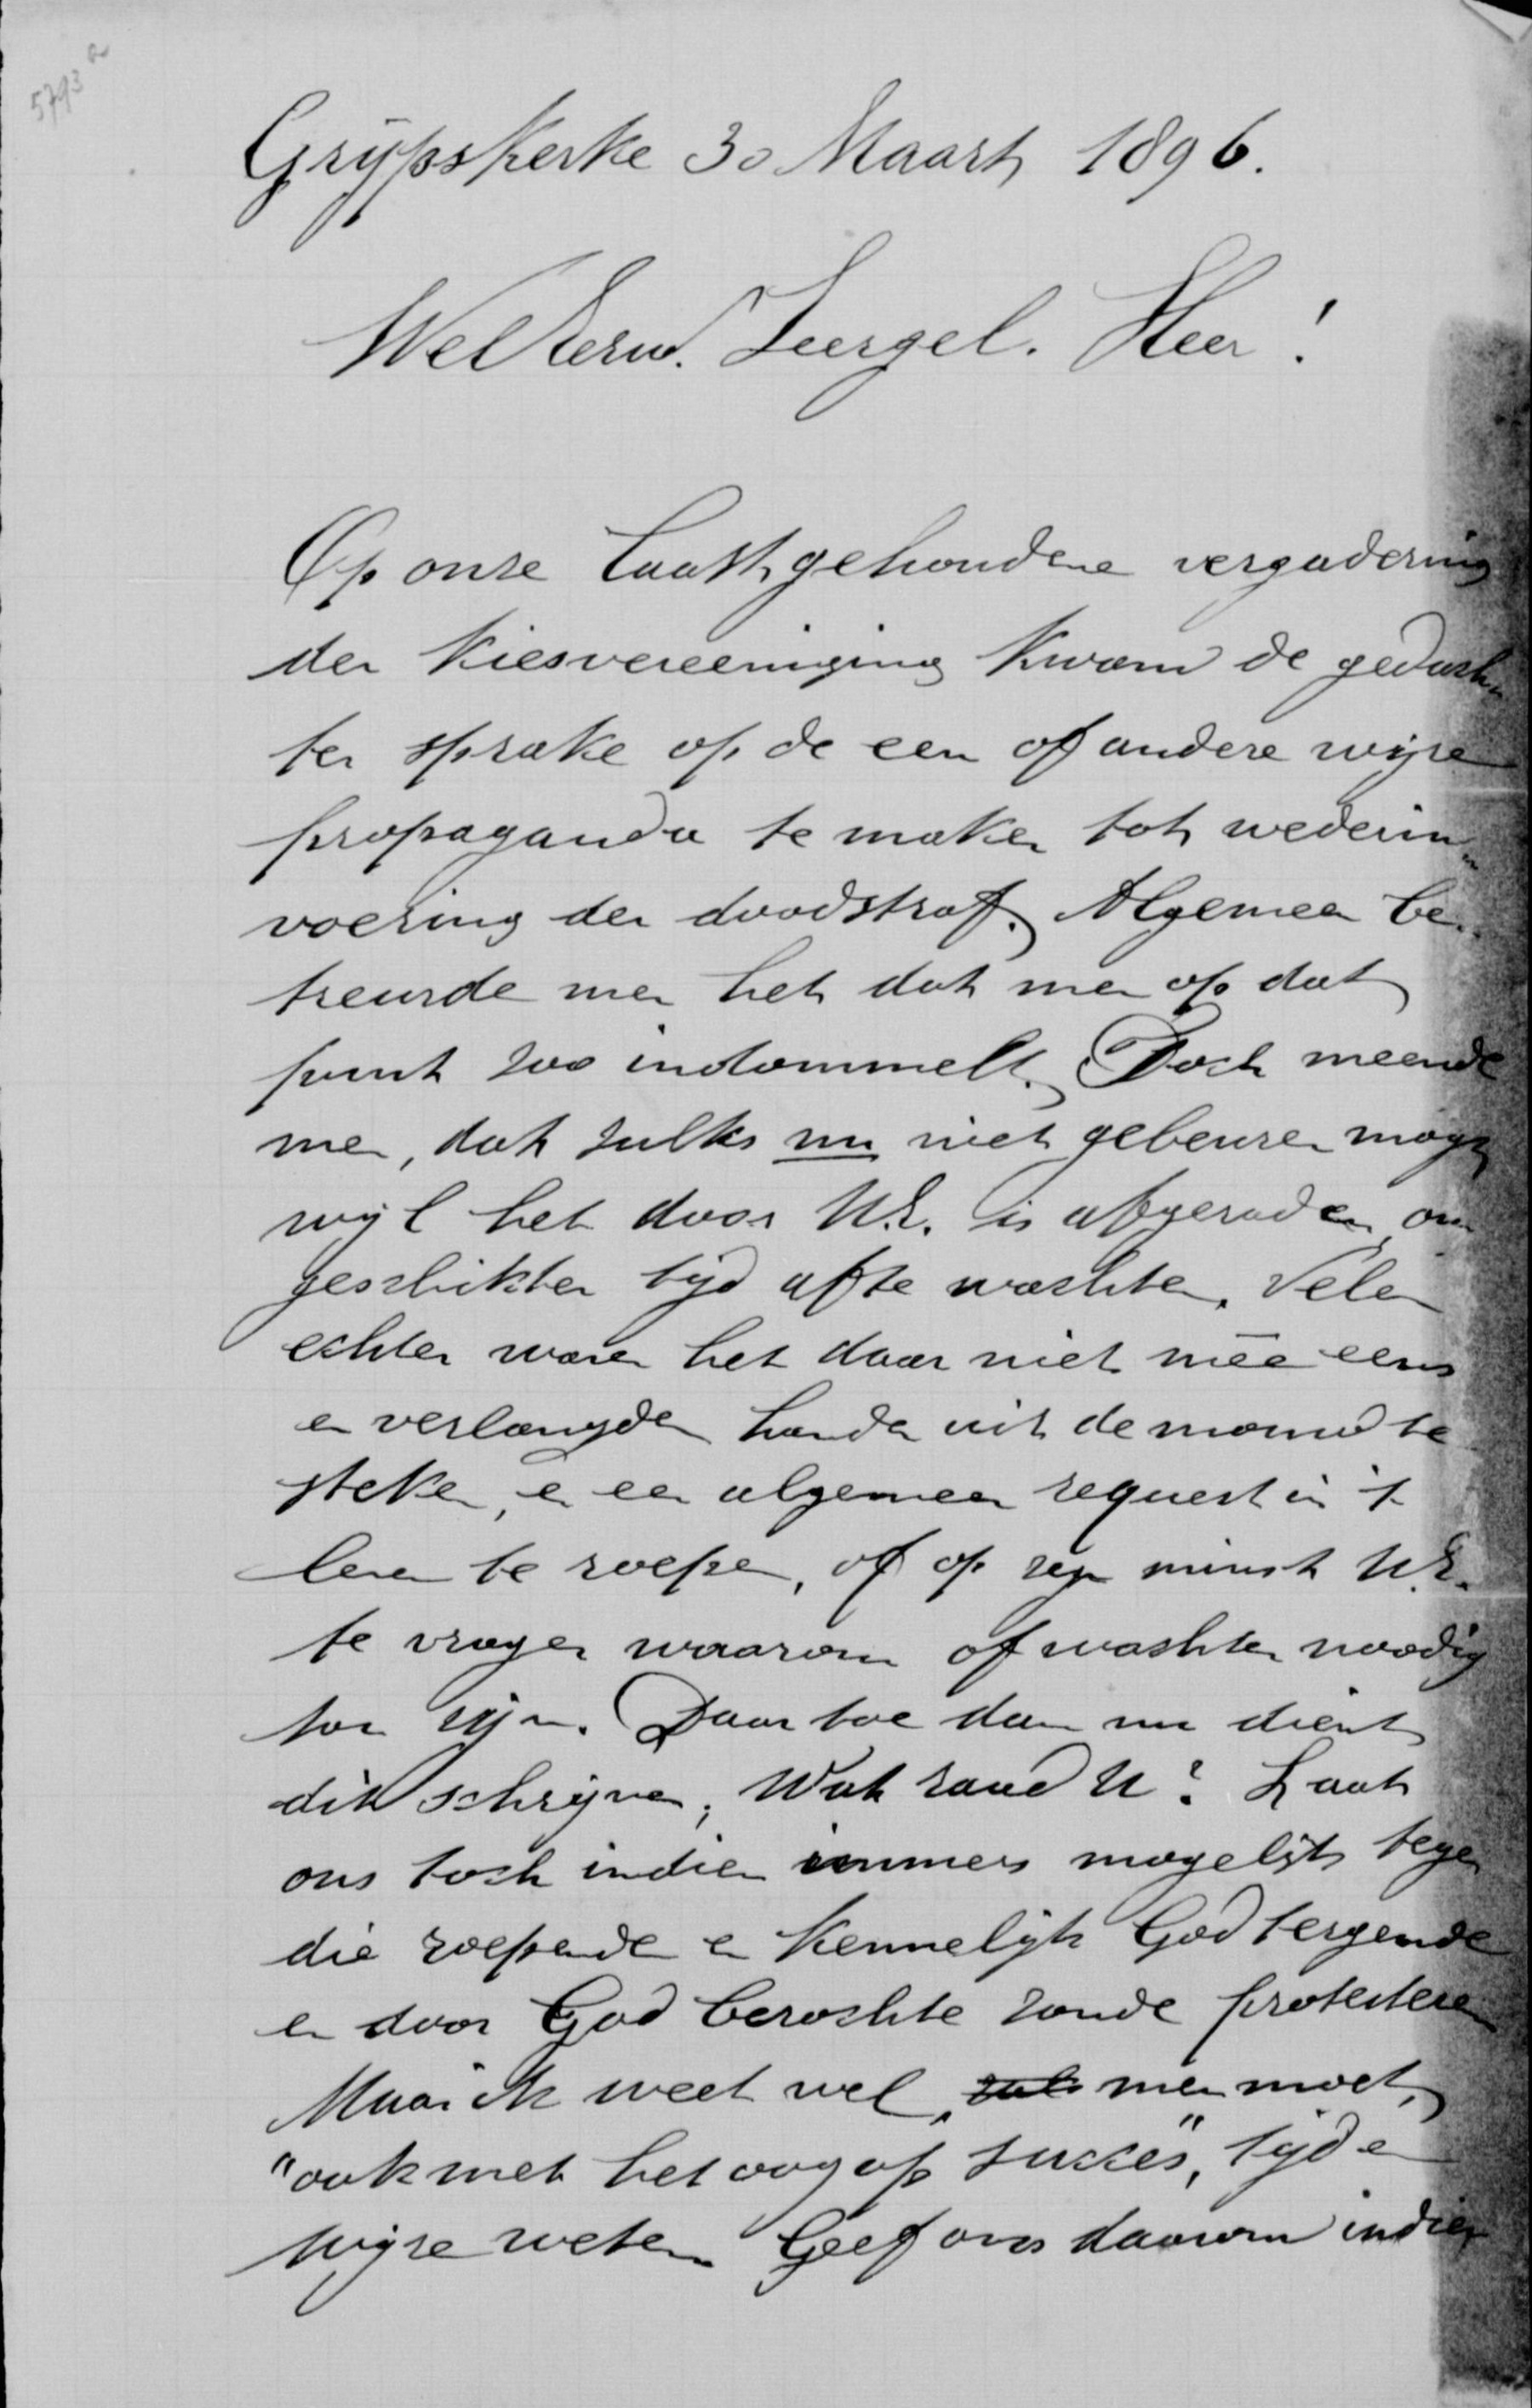 5793
Grijpskerke 30 Maart 1896.
WelEerw. Leergel. Heer!
Op onze laatstgehoudene vergadering
der Kiesvereeniging kwam de gedachte
ter sprake op de een of andere wijze
propaganda te maken tot wederin-
voering der doodstraf. Algemeen be-
treurde men het dat men op dat
punt zoo indommelt. Doch meende
men, dat zulks nu niet gebeuren mogt
wijl het door U.E. is afgeraden, om
geschikter tijd af te wachten. Velen
echter waren het daar niet mêe eens
en verlangden handen uit de mouw te
steken, en een algemeen request in 't
leven te roepen, of op zijn minst U.E.
te vragen waarom afwachten noodig
kon zijn. Daartoe dan nu dient
dit schrijven, Wat raad U? Laat
ons toch indien immers mogelijk tegen
die roepende en kennelijk God tergende
en door God bezochte zonde protesteren
Maar ik weet wel, men moet,
"ook met het oog op succes", tijd en
wijze weten Geef ons daarom indien